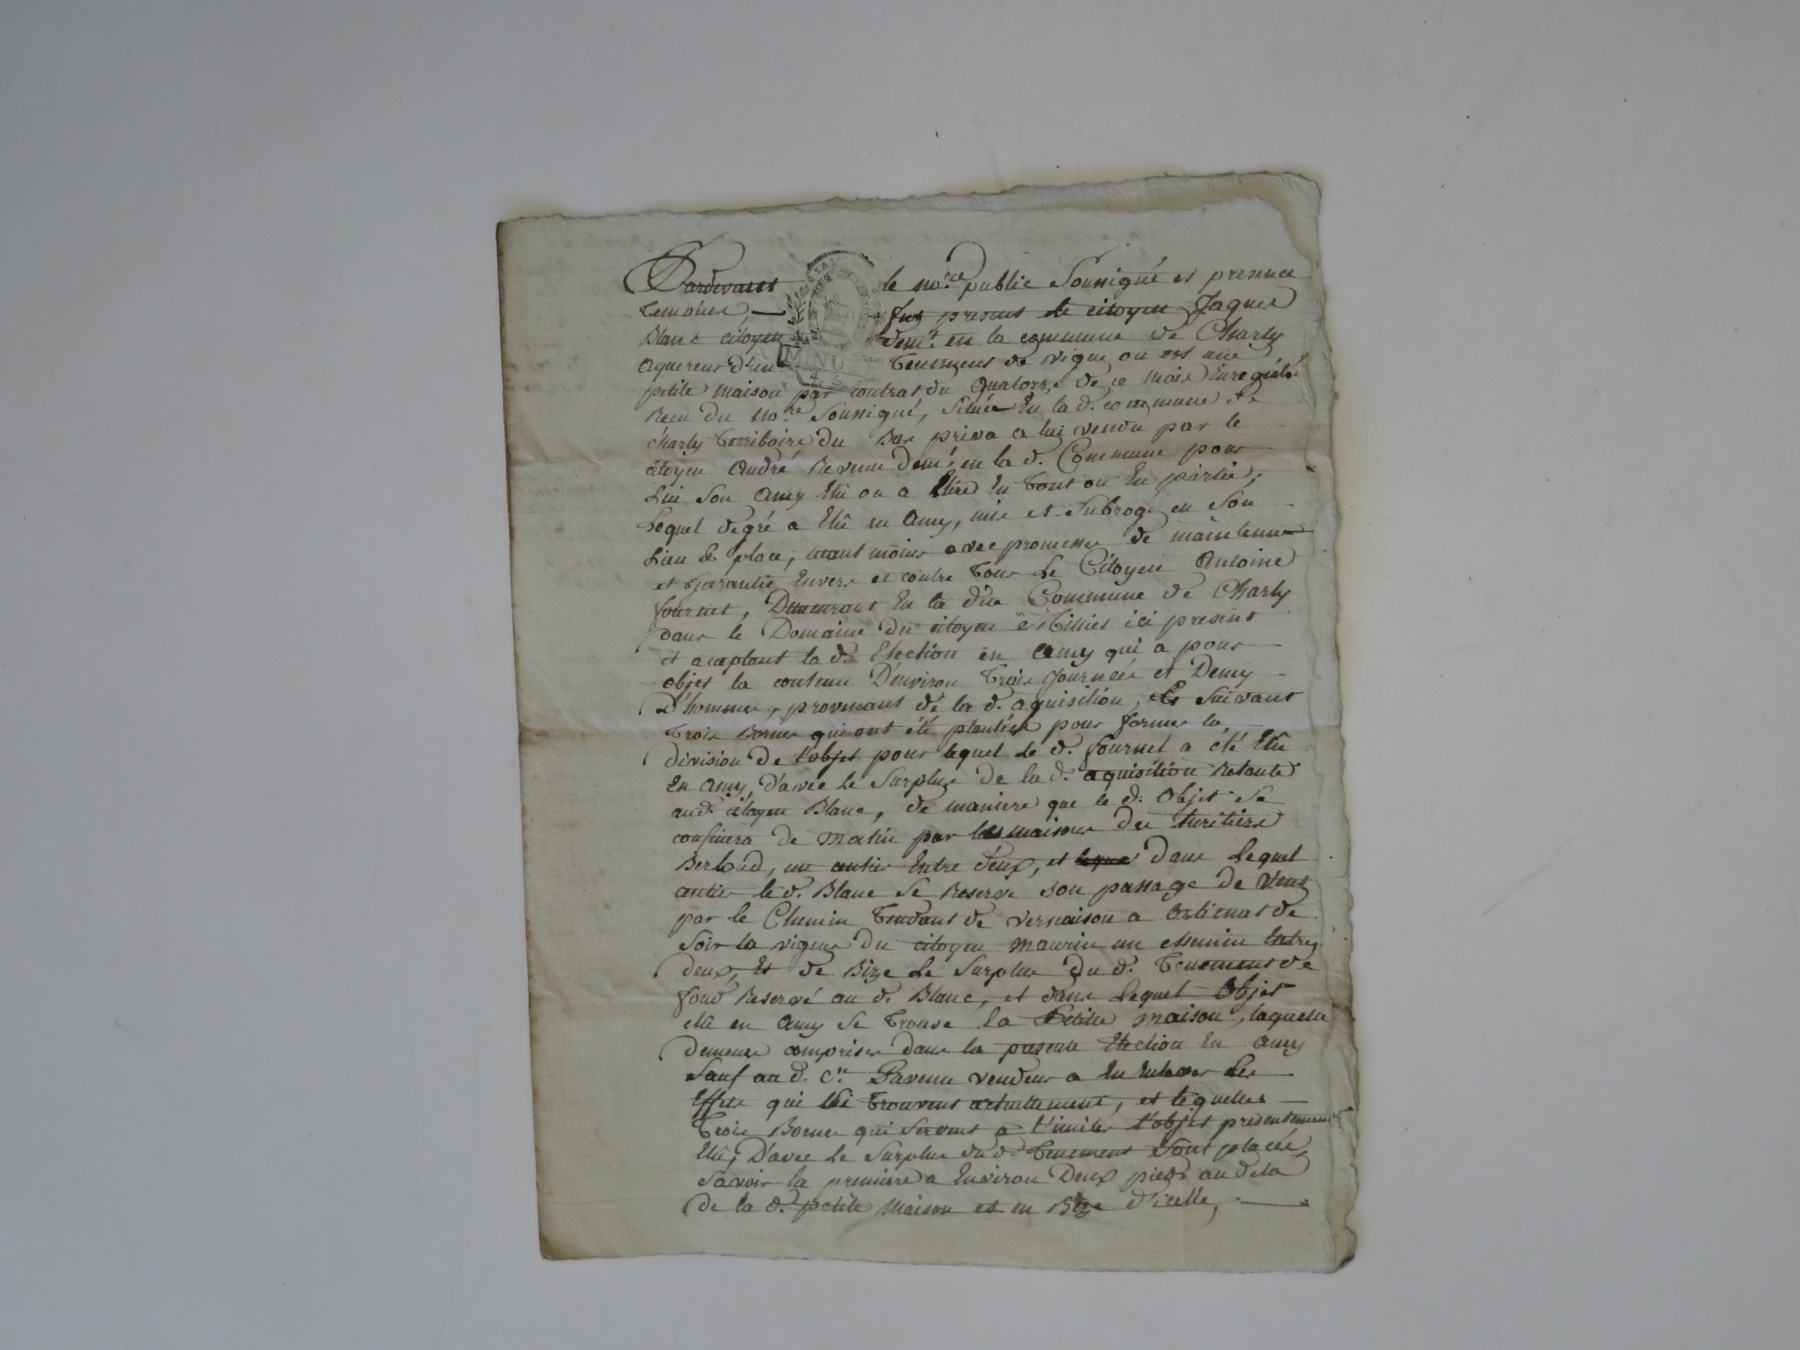 Pardevant le no.re public Soussigné et presence
Temoins, — fut present le citoyen Jaques
Blanc citoyen dem.t en la commune de Charly
aquereur d'un Tenement de vigne ou est une
petite maison par contrat du Quatorze de ce mois Enregistré
Recu du no.re Soussigné, Située En la d. commune de
Charly Territoire du Bas priva a lui vendu par le
citoyen André Ravenu dem.t en la d. Commune pour
Lui Son amy Elû ou a Elire En Tout ou En partie,
Lequel de gré a Elû en amy, mis et Subrogé en Son
Lieu & place, neant moins avec promesse de maintenue
et Garantie Envers et contre Tous Le Citoyen Antoine
fournet, Demeurant En la d.te Commune de Charly
dans le Domaine du citoyen ici present
et aceptant la d. Election en amy qui a pour
objet la contenue D'environ Trois Journées et Demy
D'homme, provenant de la d. aquisition, Et Suivant
Trois Bornes qui ont été plantées pour former la
division de l'objet pour lequel le d. fournet a été Elû
En amy, d'avec Le Surplus de la d. aquisition Restante
aud. citoyen Blanc, de maniere que le d. Objet Se
confinera de Matin par les maisons des heritiers
Berloud, un antier Entre d'eux, et dans Lequel
antier le d. Blanc Se Reserve son passage de Vent
par le Chemin Tendant de Vernaison a de
Soir la vigne du citoyen maurin un chemin Entre
deux, Et de Bize Le Surplus du d. Tenement de
fond Reservé au d. Blanc, et dans Lequel Objet
elû en amy Se Trouve la Petitte Maison, laquelle
demeure comprise dans la presente Election En amy
Sauf au d. C.n Ravenu vendeur a En Enlever Les
Effets qui S'i Trouvent actuellement, et lequelles —
Trois Bornes qui Servent a Limiter l'objet presentement
Elû, D'avec Le Surplus du d. Tenement Sont placées,
Savoir la premiere a Environ Deux pieds au dela
de la d. petite Maison et en Bize d'icelle, —